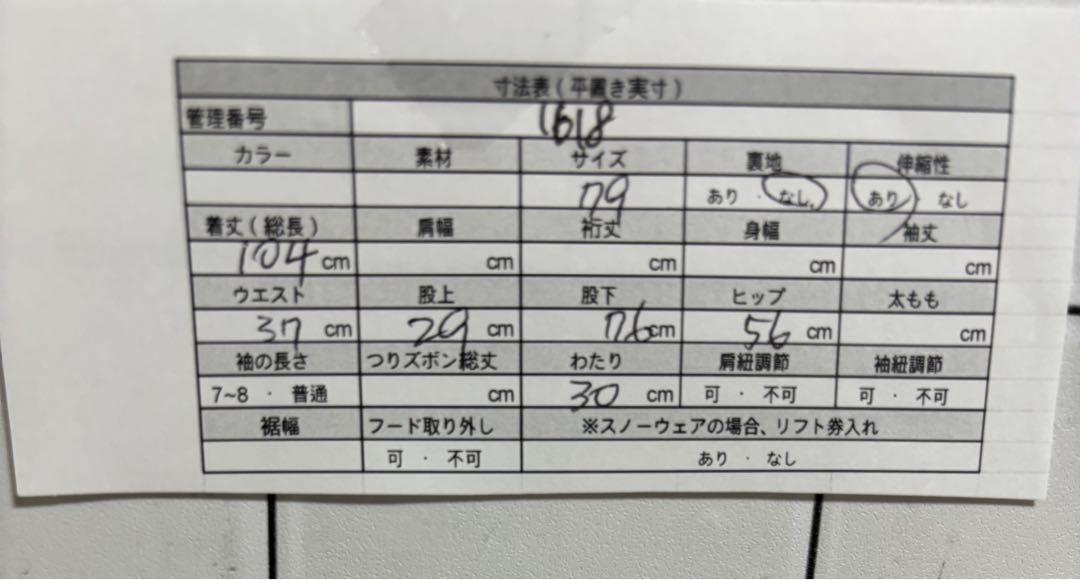 寸法表(平置き実寸)
管理番号 1618
カラー 素材 サイズ 裏地 伸縮性
79 あり · なし あり · なし
着丈(総長) 肩幅 裄丈 身幅 袖丈
104 cm cm cm cm cm
ウエスト 股上 股下 ヒップ 太もも
37 cm 29 cm 76cm 56 cm cm
袖の長さ つりズボン総丈 わたり 肩紐調節 袖紐調節
7~8 · 普通 cm 30 cm 可 · 不可 可 · 不可
裾幅 フード取り外し ※スノーウェアの場合、リフト券入れ
可 · 不可 あり · なし